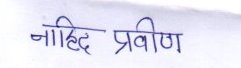 नाहिद प्रवीण